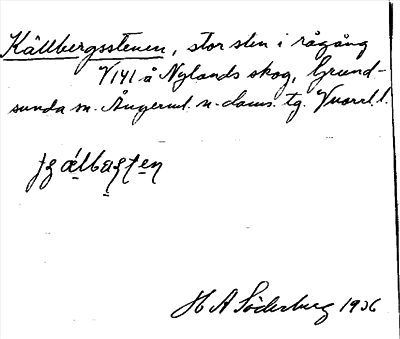 Källbergsstenen, stor sten i rågång
VI41 å Nylands skog, Grund-
sunda sn. Ångerml. n. doms. tg. V norrl. l.
H A Söderberg 1936